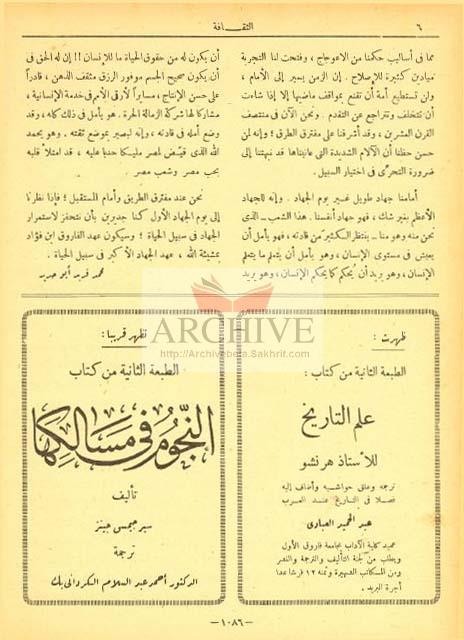 ٦
الثقافة
مما في أساليب حكمنا من الاعوجاج ، وفتحت لنا التجربة
ميادين كثيرة للإصلاح . إن الزمن يسير إلى الأمام ،
ولن تستطيع أمة أن تقنع بمواقف ماضيها إلا إذا شاءت
أن تتخلف وتتراجع عن التقدم . ونحن الآن في منتصف
القرن العشرين ، وقد أشرفنا على مفترق الطرق ؛ وإنه لمن
حسن حظنا أن الآلام الشديدة التي عانيناها قد نبهتنا إلى
ضرورة التحرى في اختيار السبيل .
أمامنا جهاد طويل غير يوم الجهاد . وإنه للجهاد
الأعظم بغير شك ، فهو جهاد أنفسنا . هذا الشعب ـ الذى
نحن منه وهو منا ـ ينتظر الكثير من قادته ، فهو يأمل أن
يعيش في مستوى الإنسان ، وهو يأمل أن يتعلم ما يتعلم
الإنسان ، وهو يريد أن يحكم كما يحكم الإنسان ، وهو يريد
أن يكون له من حقوق الحياة ما للإنسان !! إن له الحق في
أن يكون صحيح الجسم موفور الرزق مثقف الذهن ، قادراً
على حسن الإنتاج ، مسايراً لأرقى الأمم في خدمة الإنسانية ،
مشاركا لها شركة الزمالة الحرة . هو يأمل في ذلك كله ، وقد
وضع أمله في قادته ، وإنه ليبصر بموضع ثقته . وهو يحمد
الله الذى قيض لمصر مليكا حدبا عليه ، قد امتلأ قلبه
بحب مصر وشعب مصر .
نحن عند مفترق الطريق وأمام المستقبل ؛ فإذا نظرنا
إلى يوم الجهاد الأول كنا جديرين بأن نتحفز لاستمرار
الجهاد في سبيل الحياة ؛ وسيكون عهد الفاروق ابن فؤاد
بمشيئة الله ، عهد الجهاد الأكبر في سبيل الحياة .
محمد فريد أبو حديد
ARCHIVE
http://Archivebeta.Sakhrit.com
ظهرت :
الطبعة الثانية من كتاب :
علم التاريخ
للأستاذ هرنشو
ترجمه وعلق حواشيه وأضاف إليه
فصلا في التاريخ عند العرب
عبد الحميد العبادى
عميد كلية الآداب بجامعة فاروق الأول
ويطلب من لجنة التأليف والترجمة والنشر
ومن المكاتب الشهيرة وثمنه ١٢ قرشا عدا
أجرة البريد .
تظهر قريبا :
الطبعة الثانية من كتاب
النجوم في مسالكها
تأليف
سير جيمس جينز
ترجمة
الدكتور أحمد عبد السلام الكردانى بك
— ١٠٨٦ —